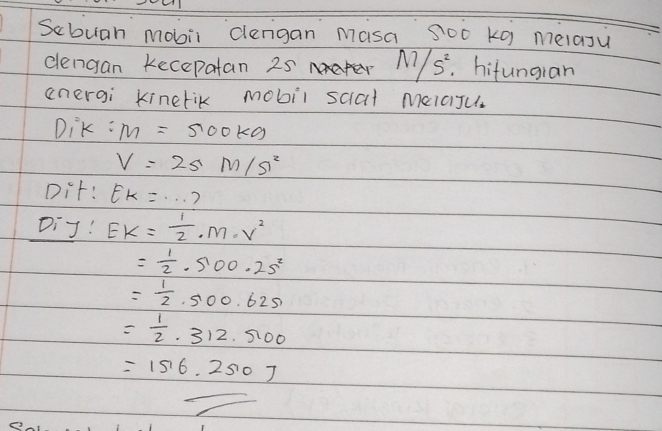 Sebuah mobil dengan masa 500 kg melaju
dengan kecepatan 25 M/s². hitungian
energi kinetik mobil saat melaju.
Dik : m = 500 kg
V = 25 M/s²
Dit : Ek = ...?
Dij : Ek = 1/2 . m . v²
= 1/2 . 500 . 25²
= 1/2 . 500 . 625
= 1/2 . 312.500
= 156.250 J